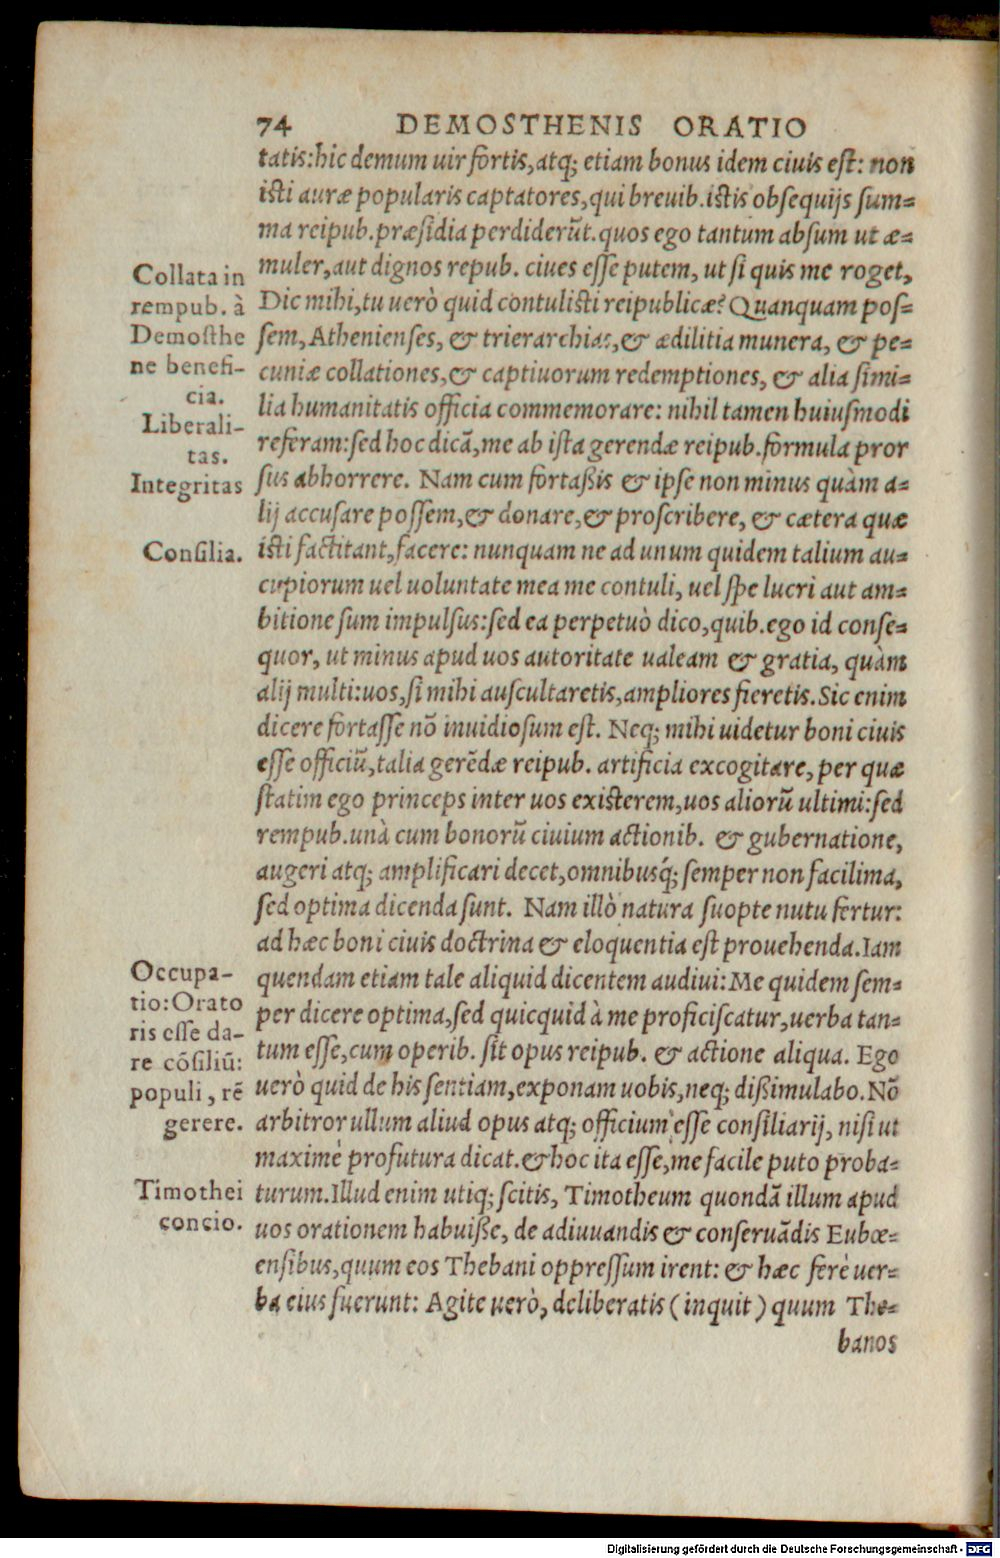 74 DEMOSTHENIS ORATIO
tatis: hic demum uir fortis, atq; etiam bonus idem ciuis est: non
isti auræ popularis captatores, qui breuib. istis obsequijs sum=
ma reipub. præsidia perdiderũt. quos ego tantum absum ut æ=
muler, aut dignos repub. ciues esse putem, ut si quis me roget,
Dic mihi, tu uerò quid contulisti reipublicæ? Quanquam pos=
sem, Athenienses, & trierarchias, & ædilitia munera, & pe=
cuniæ collationes, & captiuorum redemptiones, & alia simi=
lia humanitatis officia commemorare: nihil tamen huiusmodi
referam: sed hoc dicã, me ab ista gerendæ reipub. formula pror
sus abhorrere. Nam cum fortaßis & ipse non minus quàm a=
lij accusare possem, & donare, & proscribere, & cætera quæ
isti factitant, facere: nunquam ne ad unum quidem talium au=
cupiorum uel uoluntate mea me contuli, uel spe lucri aut am=
bitione sum impulsus: sed ea perpetuò dico, quib. ego id conse=
quor, ut minus apud uos autoritate ualeam & gratia, quàm
alij multi: uos, si mihi auscultaretis, ampliores fieretis. Sic enim
dicere fortasse nõ inuidiosum est. Neq; mihi uidetur boni ciuis
esse officiũ, talia gerẽdæ reipub. artificia excogitare, per quæ
statim ego princeps inter uos existerem, uos aliorũ ultimi: sed
rempub. unà cum bonorũ ciuium actionib. & gubernatione,
augeri atq; amplificari decet, omnibusq́; semper non facilima,
sed optima dicenda sunt. Nam illò natura suopte nutu fertur:
ad hæc boni ciuis doctrina & eloquentia est prouehenda. Iam
quendam etiam tale aliquid dicentem audiui: Me quidem sem=
per dicere optima, sed quicquid à me proficiscatur, uerba tan=
tum esse, cum operib. sit opus reipub. & actione aliqua. Ego
uerò quid de his sentiam, exponam uobis, neq; dißimulabo. Nõ
arbitror ullum aliud opus atq; officium esse consiliarij, nisi ut
maximè profutura dicat. & hoc ita esse, me facile puto proba=
turum. Illud enim utiq; scitis, Timotheum quondã illum apud
uos orationem habuiße, de adiuuandis & conseruãdis Eubœ=
ensibus, quum eos Thebani oppressum irent: & hæc ferè uer=
ba eius fuerunt: Agite uerò, deliberatis (inquit) quum The=
banos
Collata in
rempub. à
Demosthe
ne benefi-
cia.
Liberali-
tas.
Integritas
Consilia.
Occupa-
tio: Orato
ris esse da-
re cõsiliũ:
populi, rẽ
gerere.
Timothei
concio.
Digitalisierung gefördert durch die Deutsche Forschungsgemeinschaft - DFG